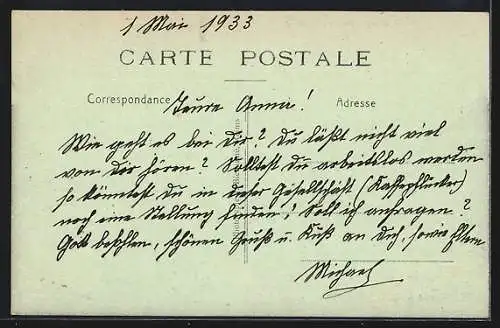 1 Mai 1933
CARTE POSTALE
Correspondance Teure Anna! Adresse
Wie geht es bei Dir? Du läßt nicht viel
von Dir hören? Solltest Du arbeitslos werden
so könntest Du in dieser Gesellschaft (Kaffepflücker)
noch eine Stellung finden! Soll ich anfragen?
Gott befohlen, schönen Gruß u. Kuß an Dich, sowie Eltern
Michael